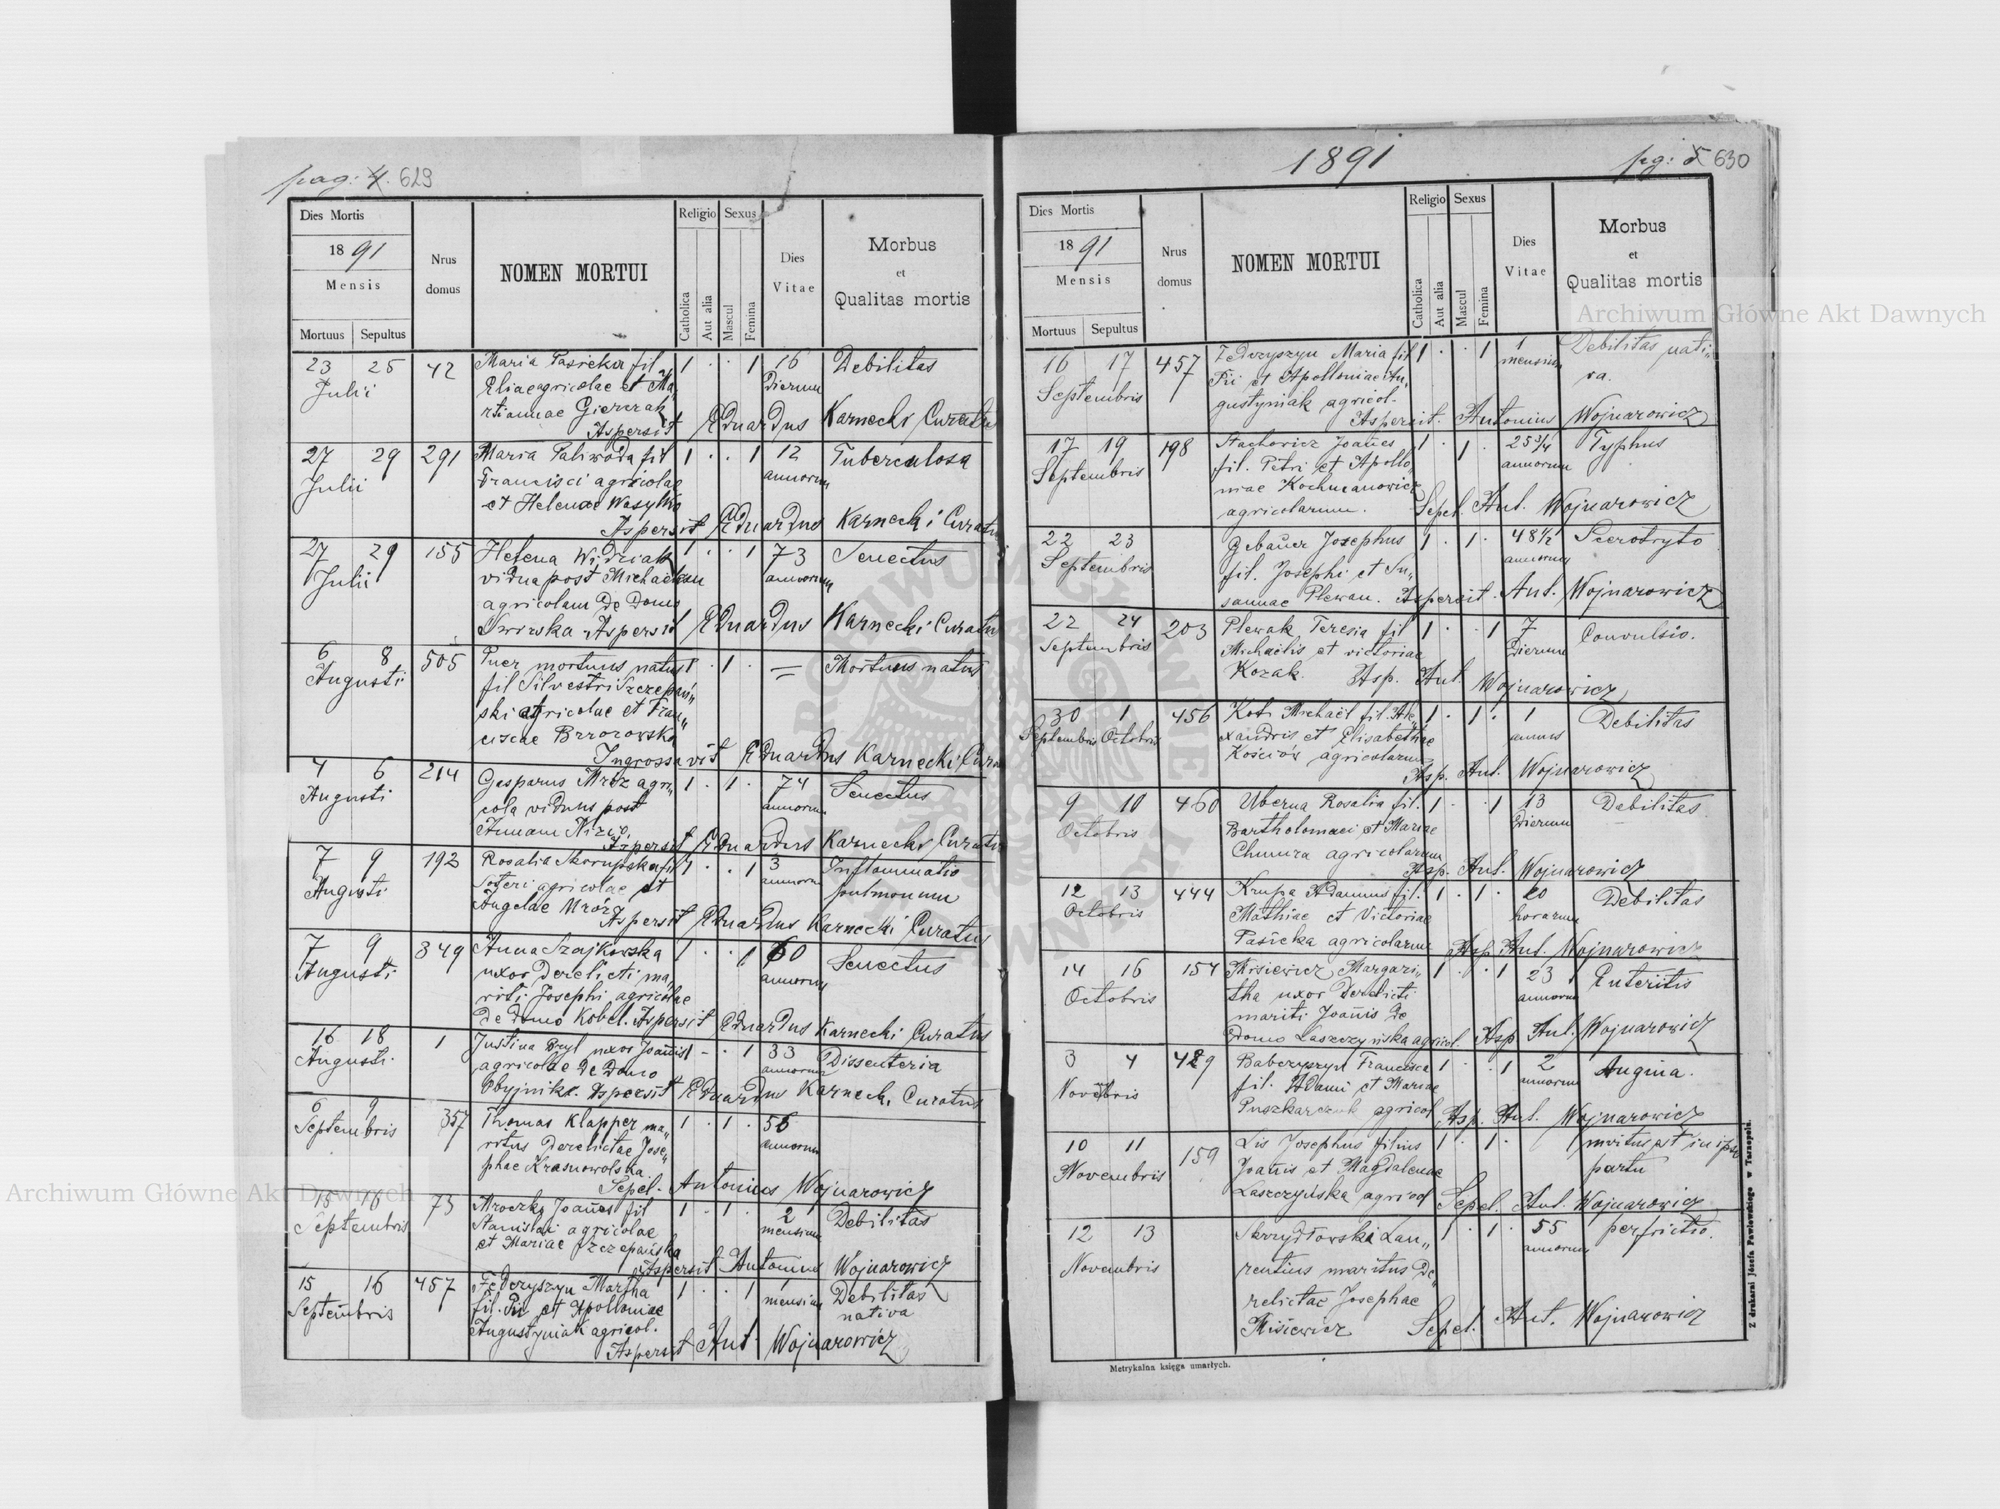 pag: 4. 629
Dies Mortis
1891
Mensis
Mortuus Sepultus
Nrus domus
NOMEN MORTUI
Religio
Catholica
Aut alia
Sexus
Mascul
Femina
Dies Vitae
Morbus
et
Qualitas mortis
23 25 42 Maria Pasieka fil 1 . . 1 16 Debilitas
Julii Eliae agricolae et Ma, Dierum
rtiannae Gierczak
Aspersit Eduardus Karnecki Curatus
27 29 291 Maria Paliwoda fil 1 . . 1 12 Tuberculosa
Julii Francisci agricolae annorum
et Helenae Wasylko
Aspersit Eduardus Karnecki Curatus
27 29 155 Helena Widziak 1 . . 1 73 Senectus
Julii vidua post Michaelem annorum
agricolam de Domo
Swirska Aspersit Eduardus Karnecki Curatus
6 8 505 Puer mortuus natus 1 . 1 . = Mortuus natus
Augusti fil Silvestri Szczepań„
ski agricolae et Fran„
ciscae Brzozowska
Ingrossavit Eduardus Karnecki Curatus
4 6 214 Gasparus Mróz agri„ 1 . 1 . 74 Senectus
Augusti cola viduus post annorum
Annam
Aspersit Eduardus Karnecki Curatus
7 9 192 Rosalia Skorupska fil 1 . . 1 3 Inflammatio
Augusti Soteri agricolae et annorum pulmonum
Angelae Mróz
Aspersit Eduardus Karnecki Curatus
7 9 349 Anna Szajkowska 1 . . 1 60 Senectus
Augusti uxor Derelicti ma, annorum
riti Josephi agricolae
De Domo Kobel. Aspersit Eduardus Karnecki Curatus
16 18 1 Justina Bryl uxor Joañis 1 - . 1 33 Dissenteria
Augusti agricolae De Domo annorum
Obyjnika. Aspersit Eduardus Karnecki Curatus
8 9 357 Thomas Klapper ma„ 1 . 1 . 56
Septembris ritus Derelictae Jose„ annorum
phae Krasnowolska
Sepel. Antonius Wojnarowicz
15 16 73 Mroczko Joañes fil 1 . 1 . 2 Debilitas
Septembris Stanislai agricolae mensium
et Mariae Szczepańska
Aspersit Antonius Wojnarowicz
15 16 457 Fedczyszyn Martha 1 . . 1 1 Debilitas
Septembris fil. Pii et Apolloniae mensium nativa
Augustyniak agricol.
Aspersit Ant. Wojnarowicz
1891
pg: 5 630
Dies Mortis
1891
Mensis
Mortuus Sepultus
Nrus domus
NOMEN MORTUI
Religio
Catholica
Aut alia
Sexus
Mascul
Femina
Dies Vitae
Morbus
et
Qualitas mortis
16 17 457 Fedczyszyn Maria fil 1 . . 1 1 Debilitas nati„
Septembris Pii et Apolloniae Au„ mensium va.
gustyniak agricol.
Aspersit. Antonius Wojnarowicz
17 19 198 Stachowicz Joañes 1 . 1 . 25 3/4 Typhus
Septembris fil. Petri et Apollo„ annorum
niae Kochmanowicz
agricolarum. Sepel. Ant. Wojnarowicz
22 23 Gebauer Josephus 1 . 1 . 48 1/2
Septembris fil. Josephi et Su„ annorum
sannae Plewan. Aspersit. Ant. Wojnarowicz
22 24 203 Plewak Teresia fil 1 . . 1 7 Convulsio.
Septembris Michaelis et victoriae Dierum
Kozak. Asp. Ant. Wojnarowicz
30 1 456 Kot Michaël fil. Ale„ 1 . 1 . 1 Debilitas
Septembris Octobris xandris et Elisabethae annus
Kościów agricolarum
Asp. Ant. Wojnarowicz
9 10 460 Uberna Rosalia fil. 1 . . 1 13 Debilitas.
Octobris Bartholomaei et Mariae Dierum
Chmura agricolarum
Asp. Ant. Wojnarowicz
12 13 444 Krupa Adamus fil. 1 . 1 . 20 Debilitas
Octobris Mathiae et Victoriae horarum
Pasieka agricolarum Asp. Ant. Wojnarowicz
14 16 154 Misiewicz Margari„ 1 . . 1 23 Enteritis
Octobris tha uxor Derelicti annorum
mariti Joañis De
Domo Laszczyńska agricol. Asp Ant. Wojnarowicz
3 4 429 Babczyszyn Francisca 1 . . 1 2 Angina.
Novembris fil. Adami et Mariae annorum
Puszkarczuk agricol Asp. Ant. Wojnarowicz
10 11 159 Lis Josephus filius 1 . 1 . mortuus est in ipso
Novembris Joañis et Magdalenae partu
Laszczyńska agricol Sepel. Ant. Wojnarowicz
12 13 Skrzydłowski Lau„ 1 . 1 . 55 perfrictio.
Novembris rentius maritus De„ annorum
relictae Josephae
Misiewicz Sepel. Ant. Wojnarowicz
Metrykalna księga umarłych.
Z drukarni Józefa Pawłowskiego w Tarnopolu.
Archiwum Główne Akt Dawnych
Archiwum Główne Akt Dawnych